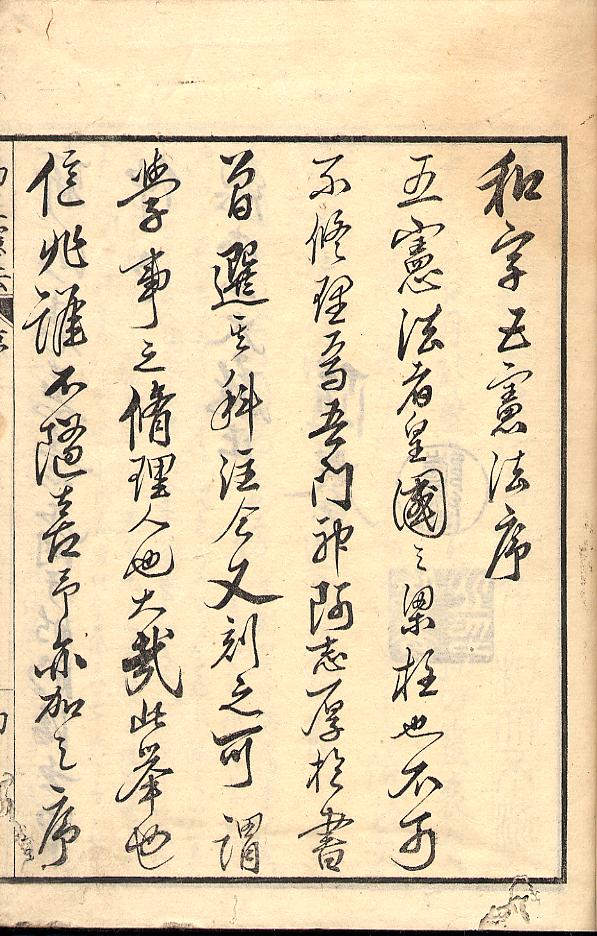 和字五憲法序
五憲法者皇國之梁柱也不可
不修理焉吾門神阿志厚於書
曽選其科注今又刻之可謂
學事之脩理人也大哉此擧也
信非謹不隨喜予亦加之序